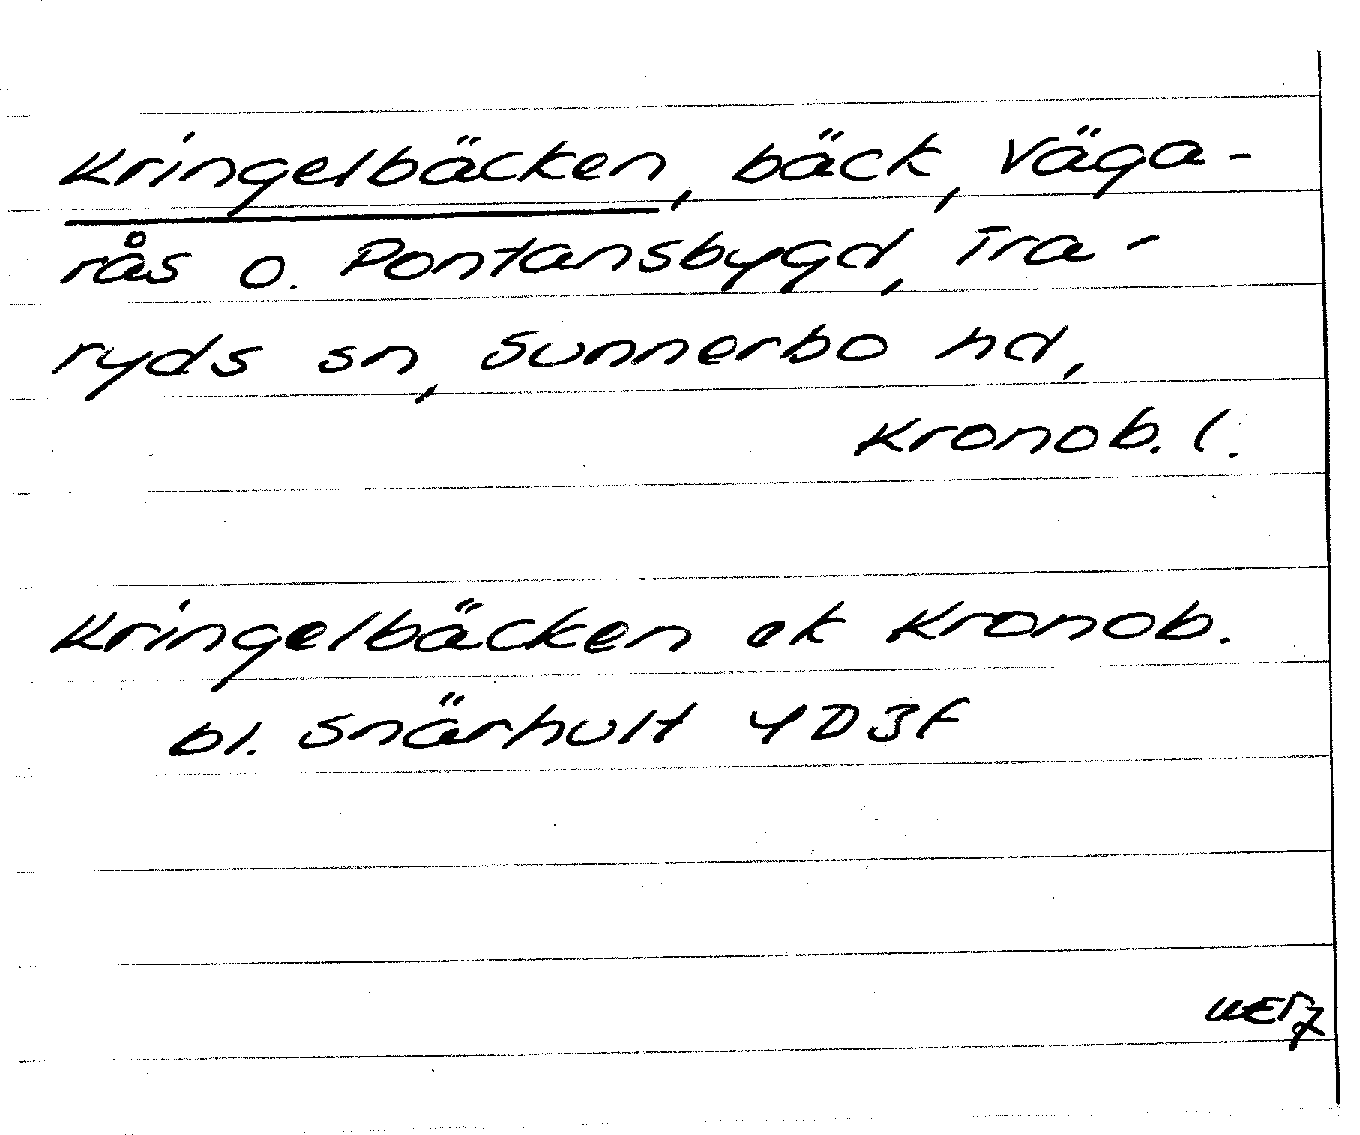 Kringelbäcken, bäck, Väga-
rås o. Pontansbygd, Tra-
ryds sn, Sunnerbo hd,
Kronob. l.
Kringelbäcken ek Kronob.
bl. Snärhult 4D3f